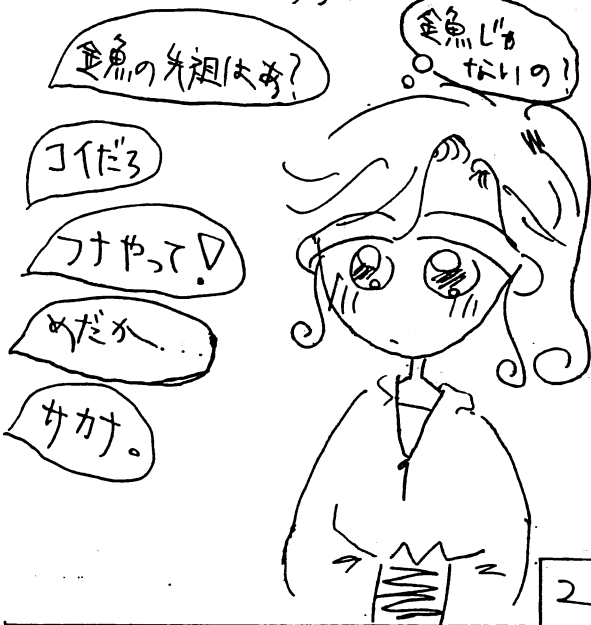 金魚の先祖はぁ?
金魚じゃ
ないの?
コイだろ
フナやって!
めだか〜...
サカナ。
2